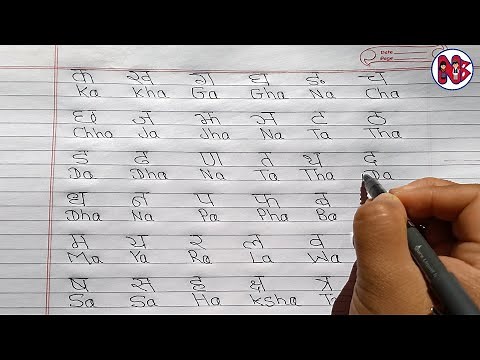 Date
Page
क ख ग घ ङ च
Ka kha Ga Gha Na Cha
छ ज झ ञ ट ठ
Chha Ja Jha Na Ta Tha
ड ढ ण त थ द
Da Dha Na Ta Tha Da
ध न प फ ब
Dha Na Pa Pha Ba
म य र ल व
Ma Ya Ra La Wa
ष स ह क्ष त्र
Sa Sa Ha Ksha